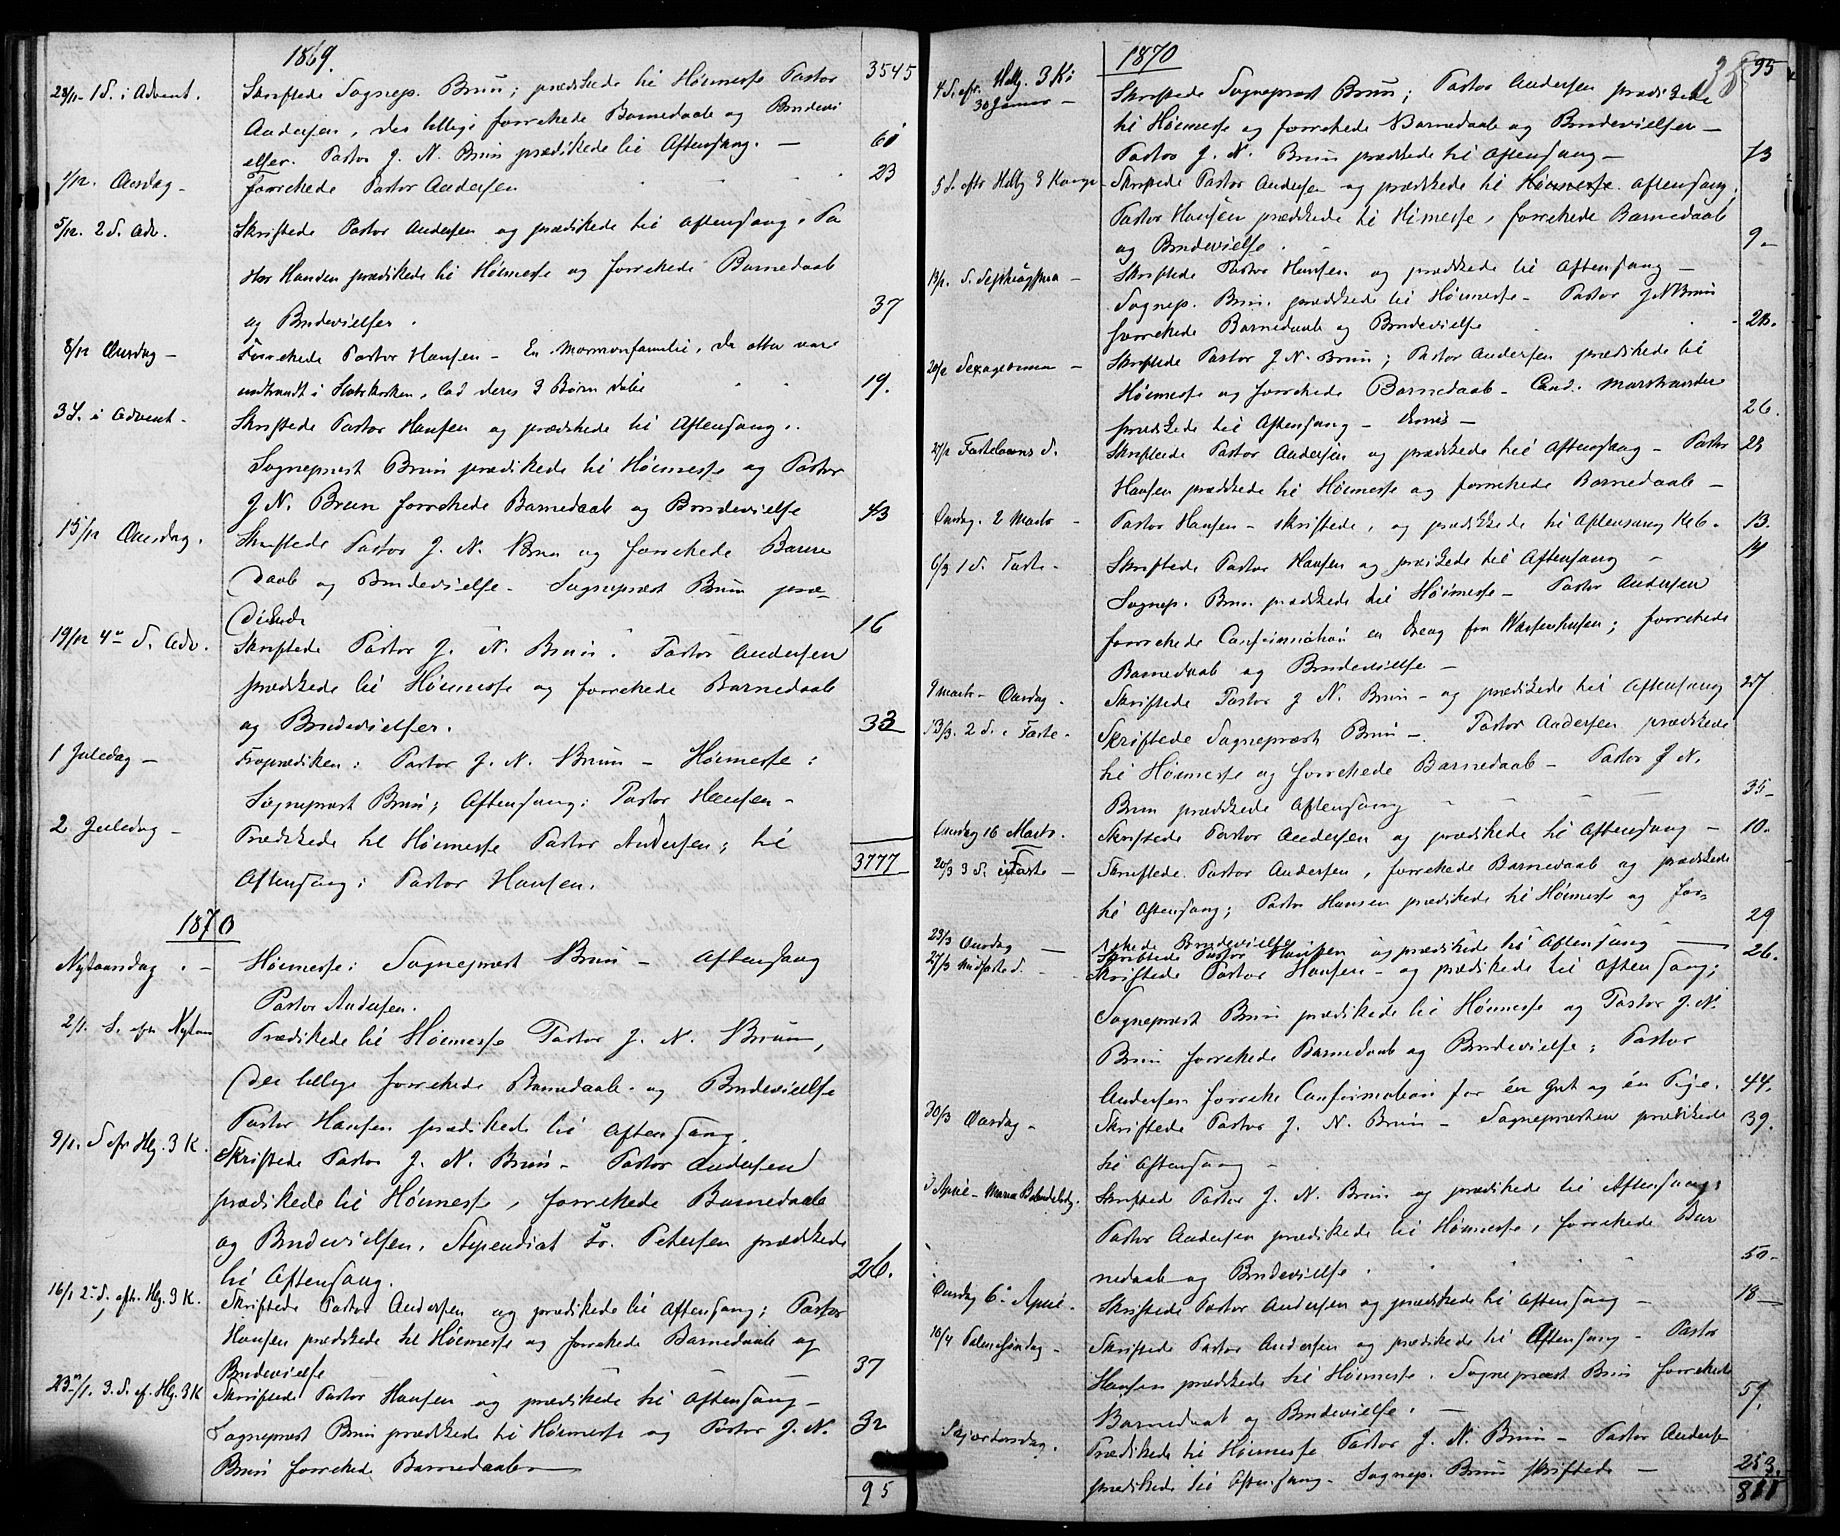 1869.
3545
28/11 1 S. i Advent. Skriftede Sognep. Brun; prædikede til Høimesse Pastor
Andersen, der tillige forrettede Barnedaab og Brudevi
elser. Pastor J. N. Brun prædikede til Aftensang. — 61
1/12. Onsdag - Forrettede Pastor Andersen 23
5/12. 2 S. Adv. Skriftede Pastor Andersen og prædikede til Aftensang. Pa
stor Hansen prædikede til Høimesse og forrettede Barnedaab
og Brudevielser. 37
8/12 Onsdag - Forrettede Pastor Hansen - En Mormonfamilie, der atter vare
indtraadt i Statskirken, lod deres 3 Børn døbe 19.
3 S. i Advent. Skriftede Pastor Hansen og prædikede til Aftensang.
Sognepræst Brun prædikede til Høimesse og Pastor
J. N. Brun forrettede Barnedaab og Brudevielse 43
15/12 Onsdag. Skriftede Pastor J. N. Brun og forrettede Barne
daab og Brudevielse. Sognepræst Brun præ-
dikede 16
19/12 4de S. Adv. Skriftede Pastor J. N. Brun. Pastor Andersen
prædikede til Høimesse og forrettede Barnedaab
og Brudevielser. 33
1 Juledag - Froprædiken: Pastor J. N. Brun - Høimesse:
Sognepræst Brun; Aftensang: Pastor Hansen -
2 Juledag - Prædikede til Høimesse Pastor Andersen; til
3777
Aftensang: Pastor Hansen.
1870
Nytaarsdag. - Høimesse: Sognepræst Brun - Aftensang
Pastor Andersen.
2/1. S. eftr Nytaar Prædikede til Høimesse Pastor J. N. Brun,
der tillige forrettede Barnedaab og Brudevielse
Pastor Hansen prædikede til Aftensang.
9/1. S eftr Hlg. 3 K. Skriftede Pastor J. N. Brun - Pastor Andersen
prædikede til Høimesse, forrettede Barnedaab
og Brudevielser, Stipendiat Fr. Petersen prædikede
til Aftensang. 26.
16/1 2den S. eftr. Hlg. 3 K. Skriftede Pastor Andersen og prædikede til Aftensang; Pastor
Hansen prædikede til Høimesse og forrettede Barnedaab og
Brudevielse 37
23/1. 3. S. ef. Hlg. 3 K Skriftede Pastor Hansen og prædikede til Aftensang -
Sognepræst Brun prædikede til Høimesse og Pastor J. N. 32
Brun forrettede Barnedaab
95
1870
95
4 S. eftr. Hellg. 3 Ko Skriftede Sognepræst Brun; Pastor Andersen prædikede
30 Januar - til Høimesse og forrettede Barnedaab og Brudevielser -
Pastor J. N. Brun prædikede til Aftensang - 13
5 S. eftr Hellg 3 Konger Skriftede Pastor Andersen og prædikede til Aftensang.
Pastor Hansen prædikede til Høimesse, forrettede Barnedaab
og Brudevielse. 9-
13/2. S. Septuagesima - Skriftede Pastor Hansen og prædikede til Aftensang -
Sognep. Brun prædikede til Høimesse - Pastor J N Brun
forrettede Barnedaab og Brudevielse 20.
20/2 Sexagesima - Skriftede Pastor J. N. Brun; Pastor Andersen prædikede til
Høimesse og forrettede Barnedaab - Cand. Marstrander
prædikede til Aftensang - 26.
27/2 Fastelavns S. Skriftede Pastor Andersen og prædikede til Aftensang - Pastor 28
Hansen prædikede til Høimesse og forrettede Barnedaab -
Onsdag. 2 Marts - Pastor Hansen - skriftede, og prædikede til Aftensang 13.
6/3 1 S. Faste - Skriftede Pastor Hansen og prædikede til Aftensang - 14
Sognep. Brun prædikede til Høimesse - Pastor Andersen
forrettede Confirmation en Dreng fra Waisenhusen; forrettede
Barnedaab og Brudevielse -
9 Marts - Onsdag. Skriftede Pastor J N. Brun - og prædikede til Aftensang 27
13/3. 2 S. i Faste - Skriftede Sognepræst Brun - Pastor Andersen prædikede
til Høimesse og forrettede Barnedaab - Pastor J. N.
Brun prædikede Aftensang 35-
Onsdag 16 Marts. Skriftede Pastor Andersen og prædikede til Aftensang - 10.
20/3 3 S. i Faste - Skriftede Pastor Andersen, forrettede Barnedaab og prædikede
til Aftensang; Pastor Hansen prædikede til Høimesse og for-
rettede Brudevielse 29
23/3 Onsdag - Skriftede Pastor Hansen og prædikede til Aftensang — 26.
27/3 Midfaste S. - Skriftede Pastor Hansen - og prædikede til Aftensang;
Sognepræst Brun prædikede til Høimesse og Pastor J. N.
Brun forrettede Barnedaab og Brudevielse; Pastor
Andersen forrette Confirmation for én Gut og én Pige. 44.
30/3 Onsdag - Skriftede Pastor J. N. Brun - Sognepræsten prædikede 39.
til Aftensang -
3 April - Maria Bebudelsdg. Skriftede Pastor J. N. Brun og prædikede til Aftensang;
Pastor Andersen prædikede til Høimesse, forrettede Bar
nedaab og Brudevielse. 50-
Onsdag 6te April. Skriftede Pastor Andersen og prædikede til Aftensang - 18 —
10/4 Palmesøndag - Skriftede Pastor Andersen og prædikede til Aftensang - Pastor
Hansen prædikede til Høimesse. Sognepræst Brun forrettede
Barnedaab og Brudevielse. - 59.
Skjærtorsdag. Prædikede til Høimesse Pastor J. N. Brun - Pastor Anders
prædikede til Aftensang - Sognep. Brun skriftede — 253.
811